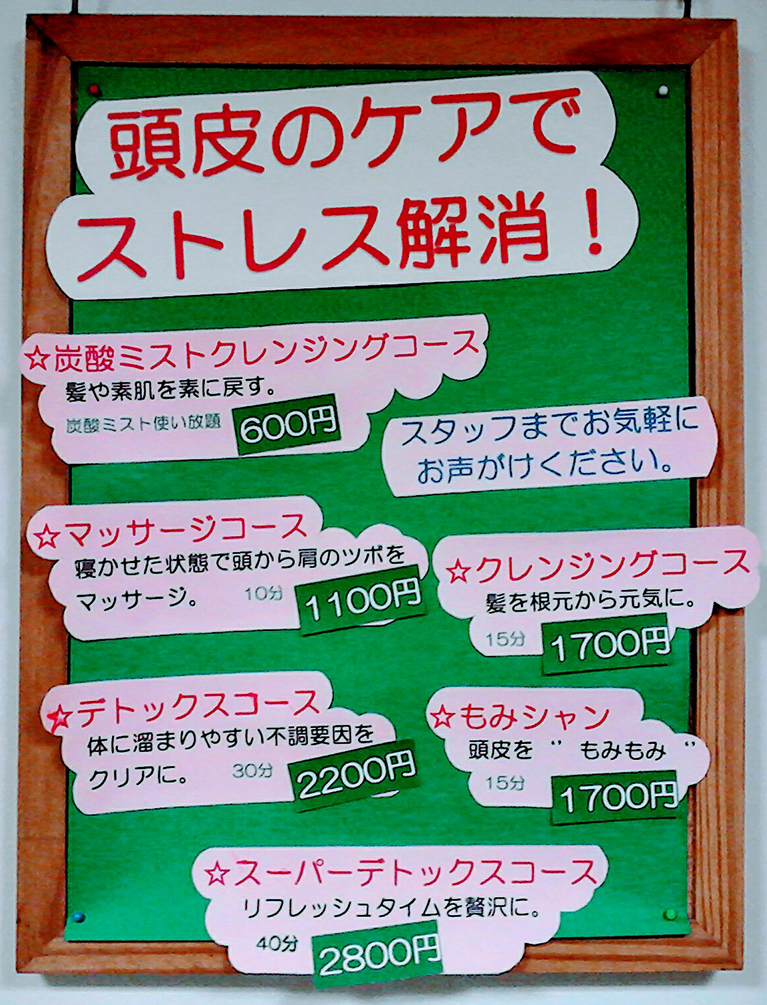 頭皮のケアで
ストレス解消！
☆炭酸ミストクレンジングコース
髪や素肌を素に戻す。
炭酸ミスト使い放題 600円
スタッフまでお気軽に
お声がけください。
☆マッサージコース
寝かせた状態で頭から肩のツボを
マッサージ。 10分 1100円
☆クレンジングコース
髪を根元から元気に。
15分 1700円
☆デトックスコース
体に溜まりやすい不調要因を
クリアに。 30分 2200円
☆もみシャン
頭皮を “ もみもみ ”
15分 1700円
☆スーパーデトックスコース
リフレッシュタイムを贅沢に。
40分 2800円